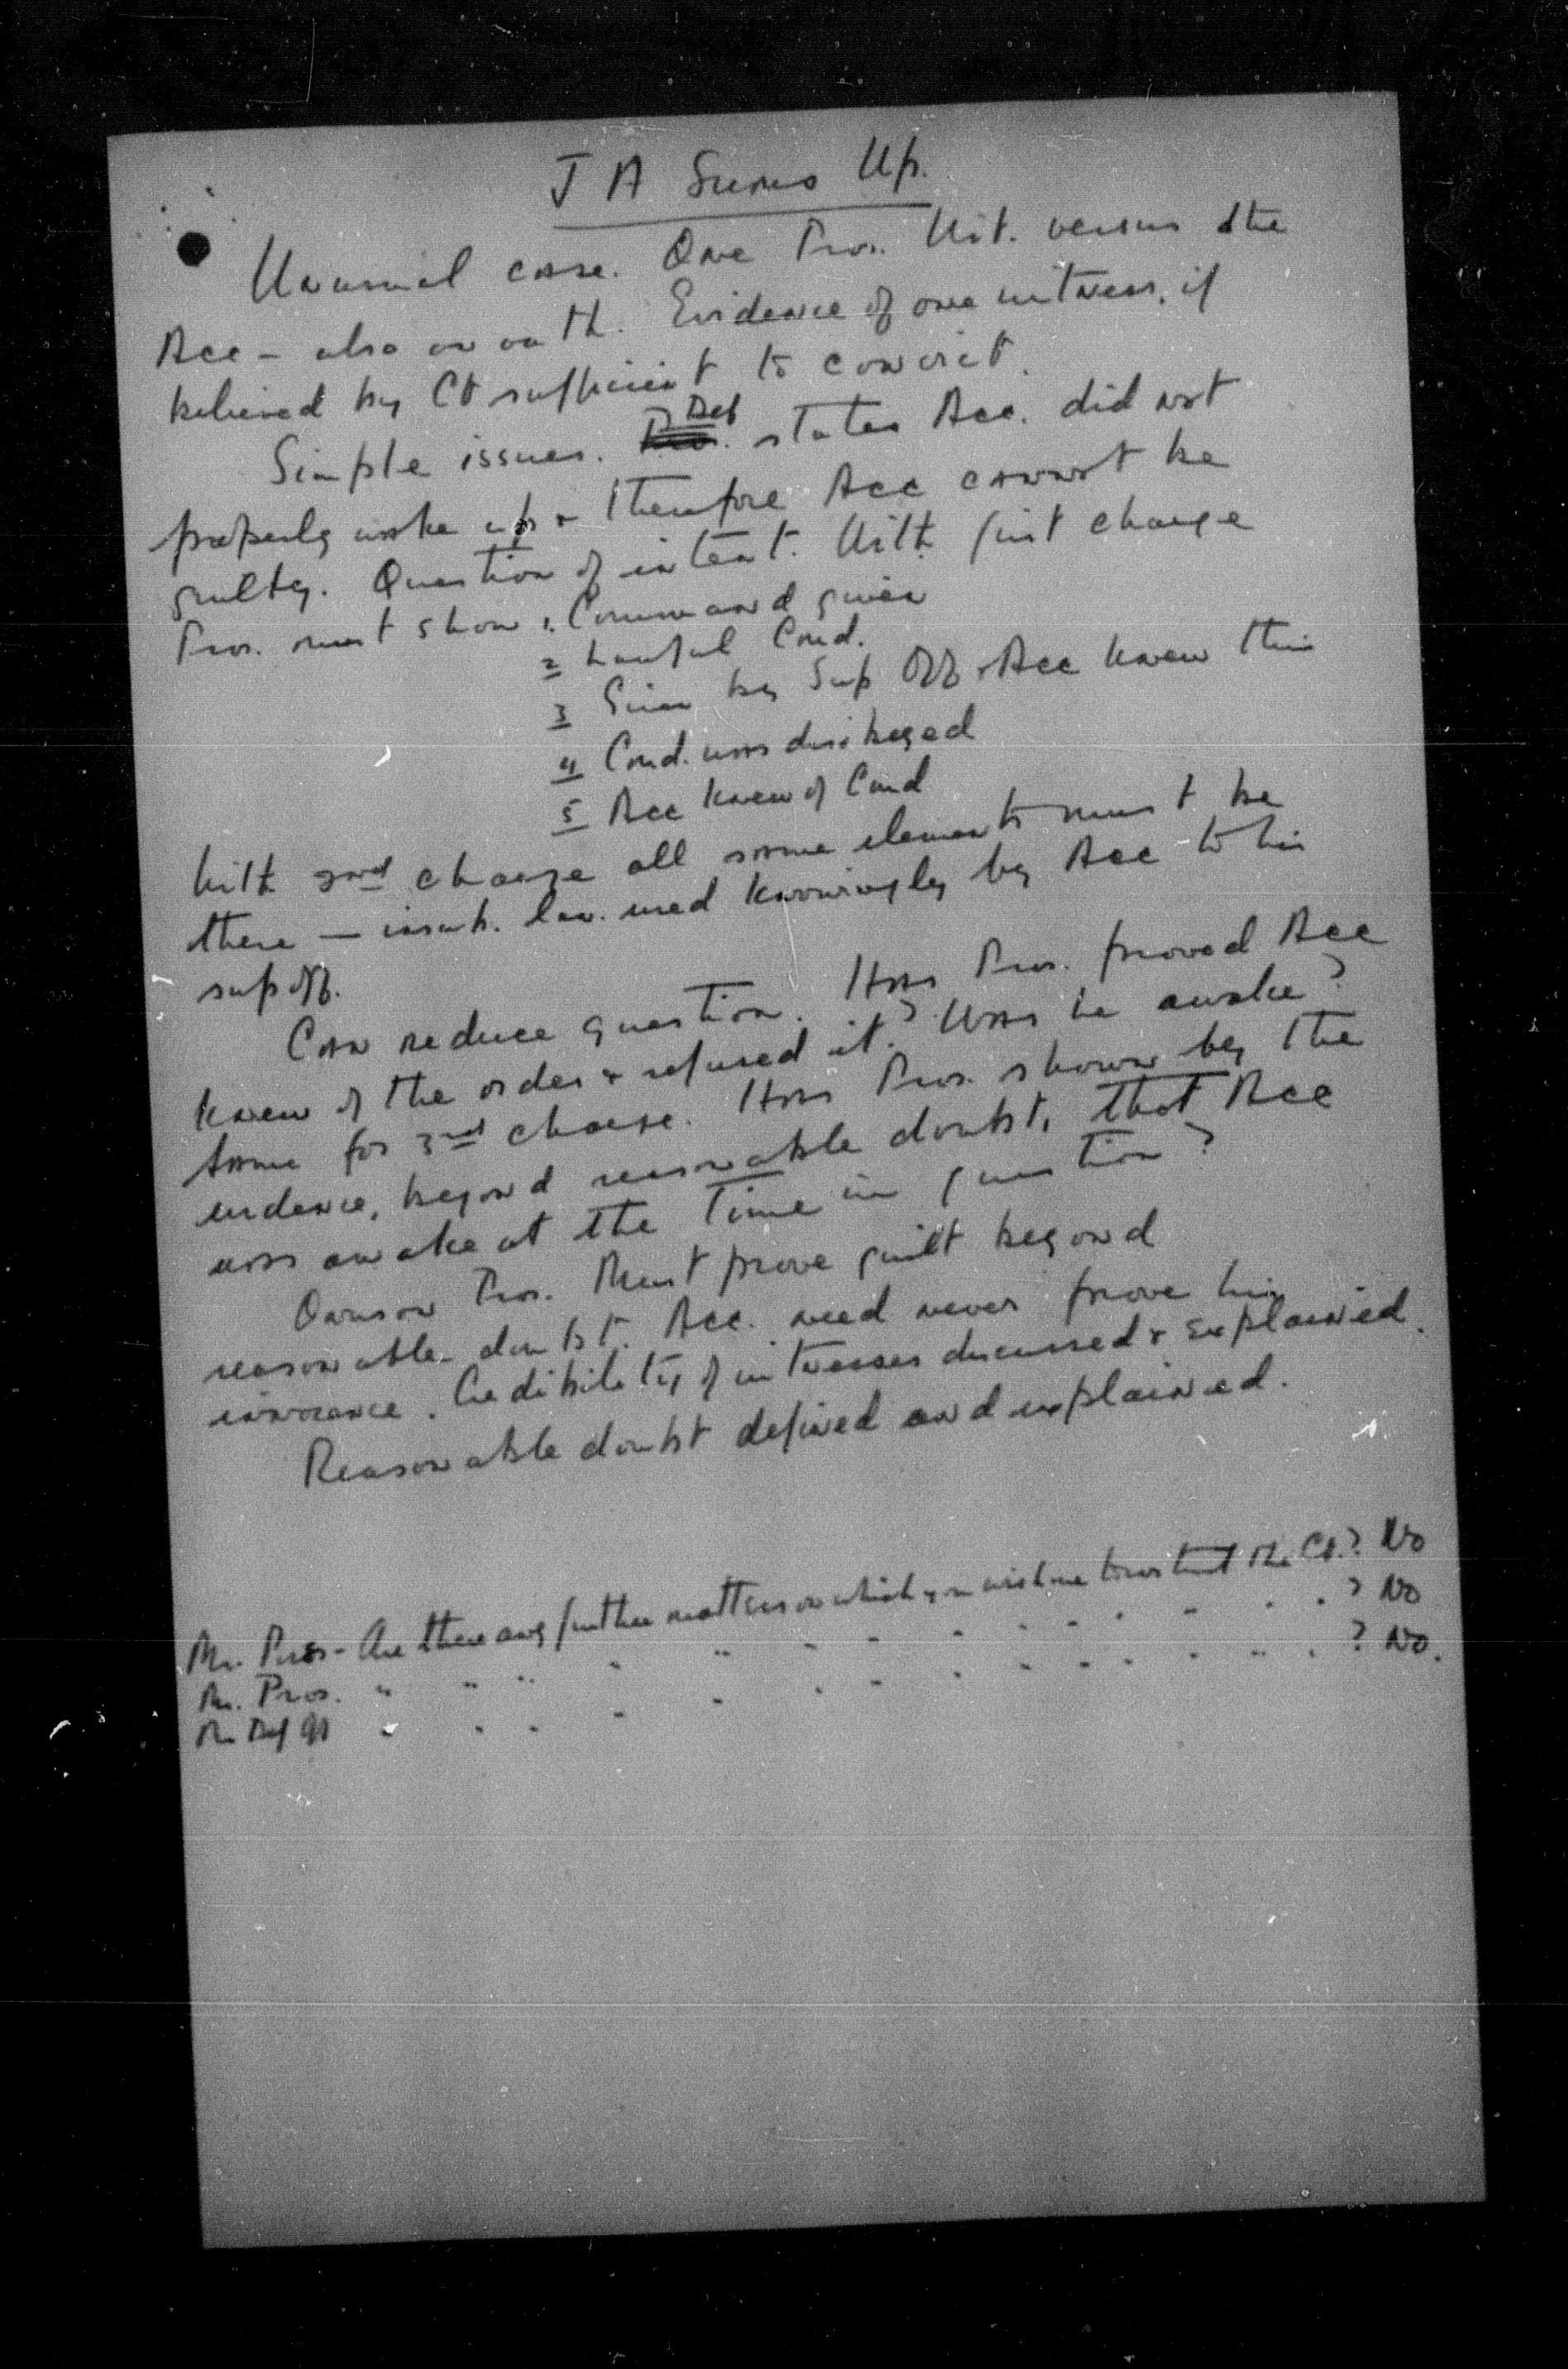 J A Sums Up.
Unusual case. One Pros. Wit. versus the
Acc – also on oath. Evidence of one witness, if
believed by Ct sufficient to convict.
Simple issues. Def states Acc. did not
properly wake up & therefore Acc cannot be
guilty. Question of intent. With first charge
Pros. must show 1. Command given
2 Lawful Comd.
3 Given by Sup Off & Acc knew this
4 Comd. was disobeyed
5 Acc knew of Comd
With 2nd charge all same elements must be
there — insub. lan. used knowingly by Acc to his
sup off.
Can reduce question. Has Pros. proved Acc
knew of the order & refused it? Was he awake?
Same for 2nd charge. Has Pros. shown by the
evidence, beyond reasonable doubt, that Acc
was awake at the time in question?
Onus on Pros. Must prove guilt beyond
reasonable doubt. Acc. need never prove his
innocence. Credibility of witnesses discussed & explained.
Reasonable doubt defined and explained.
Mr. Pres – Are there any further matters on which you wish me to instruct the Ct.? No
Mr. Pros. " " " " " " " " " " " " ? No
Mr Def " " " " " " " " " " " ? No.